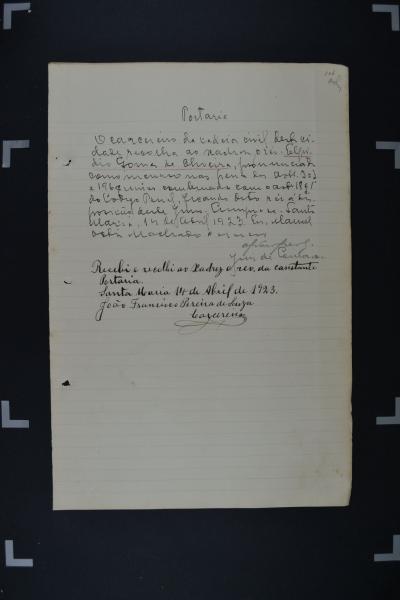 Portaria
O carcereiro da cadeia civil desta ci-
dade recolha ao xadrez o réo Elpi-
dio Gomes de Oliveira, pronunciado
como incurso nas penas dos arts. 303
e 196 combinado com o art.
do Codigo Penal, ficando dito réo á dis-
posição deste Juizo. Cumpra-se. Santa
Maria, 14 de Abril 1923. Eu, Manoel
Machado
Juiz da Comarca
Recebi e recolhi ao Xadrez o reo da constante
Portaria.
Santa Maria 14 de Abril de 1923.
João Francisco Pereira de Souza
Carcereiro